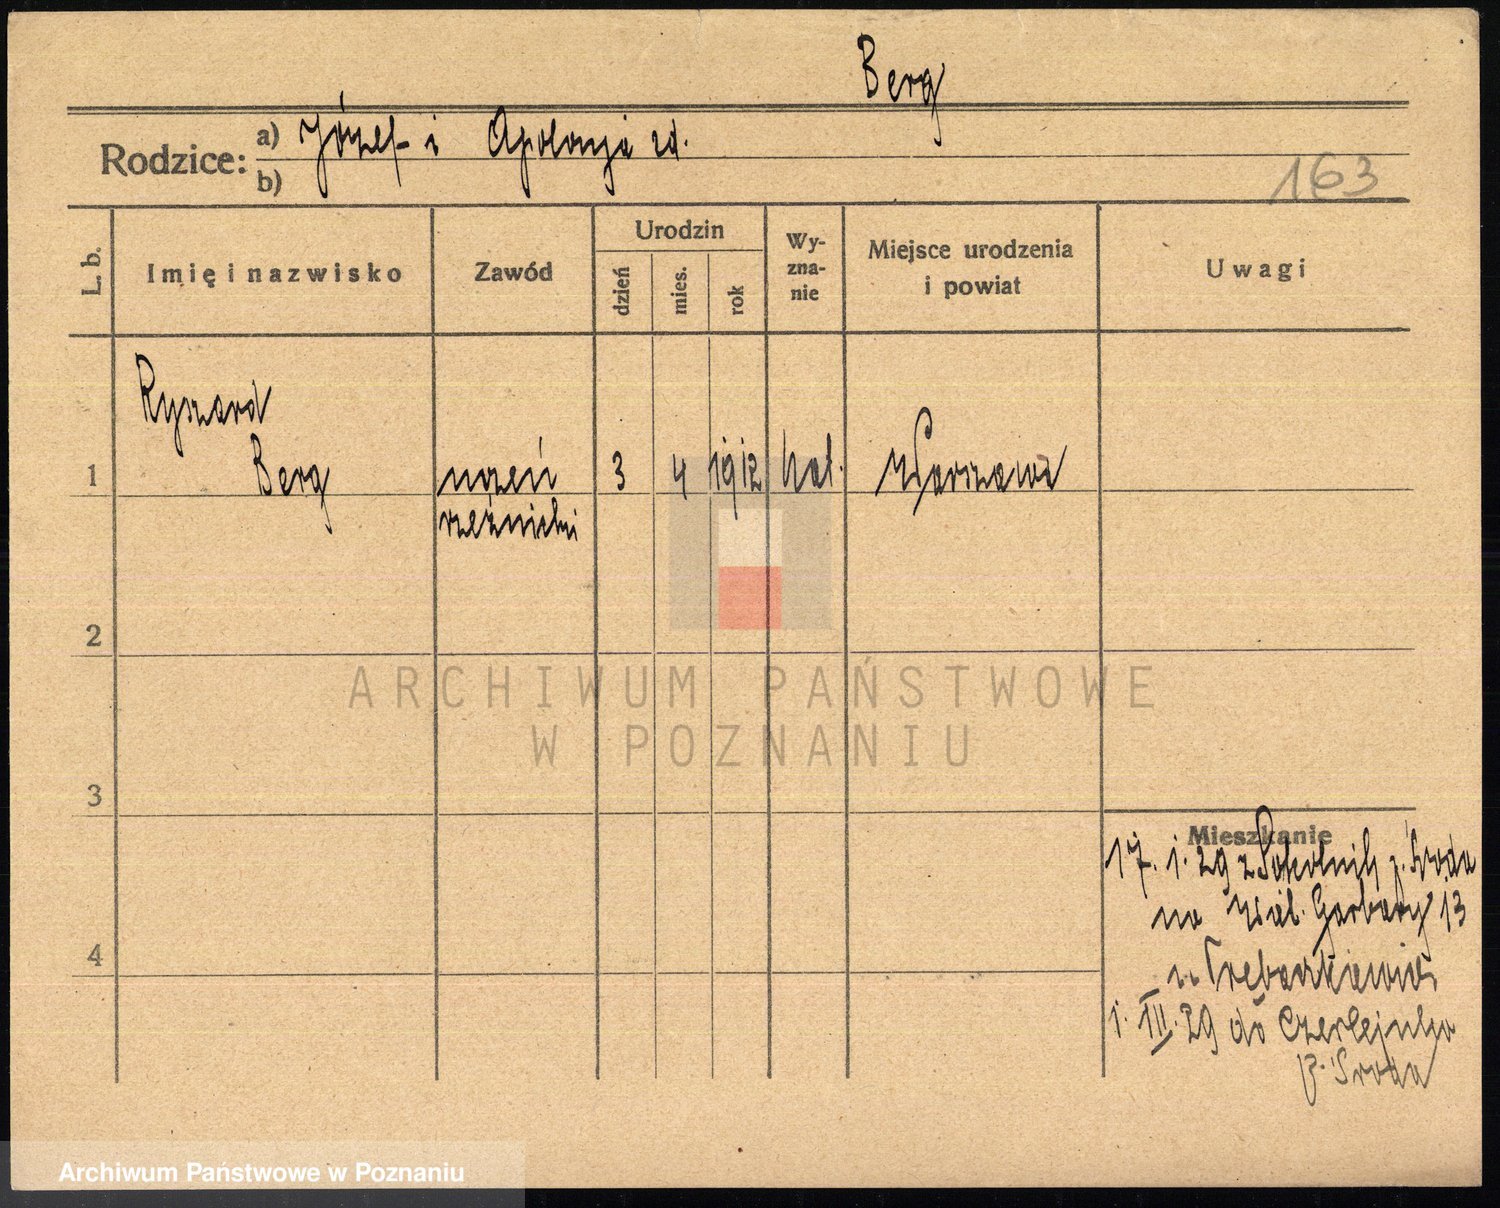 Berg
Rodzice: a) Józef i Apolonja zd.
b)
163
L. b. Imię i nazwisko Zawód Urodzin dzień mies. rok Wyzna-nie Miejsce urodzenia i powiat Uwagi
Ryszard
1 Berg uczeń 3 4 1912 kat. Warszawa
rzeźnicki
2
ARCHIWUM PAŃSTWOWE
W POZNANIU
3
Mieszkanie
17. 1. 29 z Sokolnik p. Środa
na Wiel. Garbary 13
4
u Trebaczkiewicz
1. III. 29 do Czerlejnka
p. Środa
Archiwum Państwowe w Poznaniu